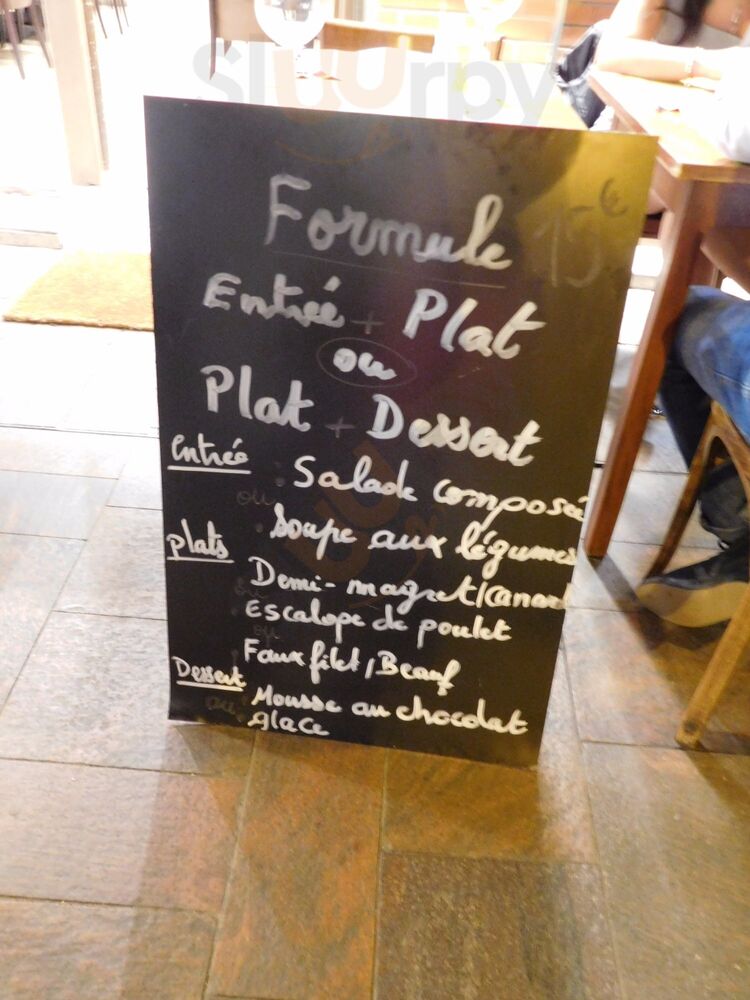 Sluurpy
Formule 15€
Entrée + Plat
ou
Plat + Dessert
Entrée : Salade composée
ou . Soupe aux légumes
plats
Demi-magret/canard
ou
Escalope de poulet
ou
Faux filet, Bœuf
Dessert
: Mousse au chocolat
ou glace